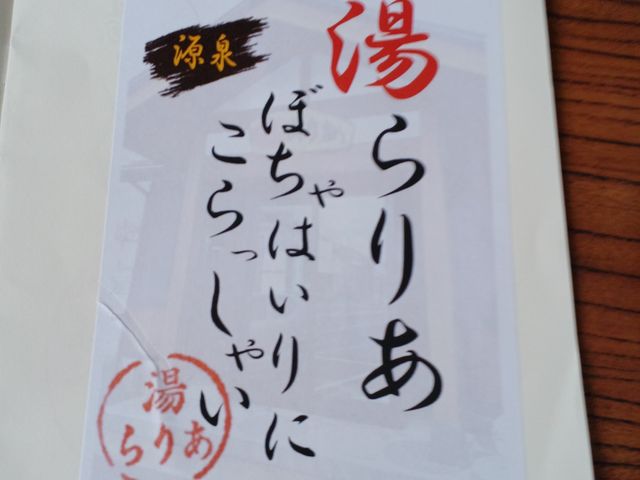 湯らりあ
ぼちゃはいりに
こらっしゃい
源泉
湯
らりあ